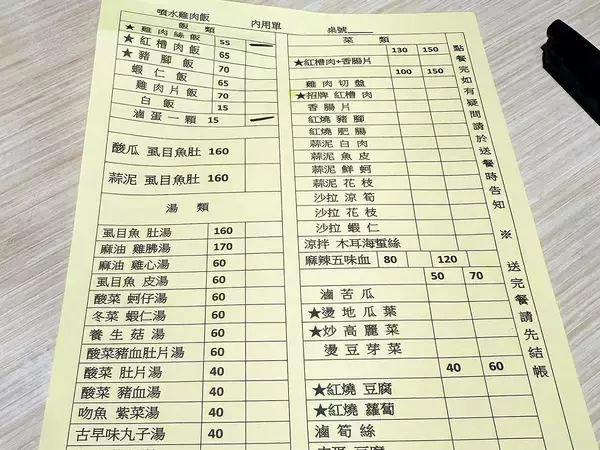 噴水雞肉飯 內用單 桌號
飯 類
★雞肉絲飯 55
★紅槽肉飯 65
★豬腳飯 70
蝦仁飯 65
雞肉片飯 70
白飯 15
滷蛋一顆 15
酸瓜 虱目魚肚 160
蒜泥 虱目魚肚 160
湯 類
虱目魚 肚湯 160
麻油 雞胇湯 170
麻油 雞心湯 60
虱目魚 皮湯 60
酸菜 蚵仔湯 60
冬菜 蝦仁湯 60
養生菇湯 60
酸菜豬血肚片湯 60
酸菜 肚片湯 40
酸菜 豬血湯 40
吻魚 紫菜湯 40
古早味丸子湯 40
菜 類
130 150
★紅槽肉+香腸片
100 150
雞肉切盤
★招牌 紅槽 肉
香腸片
紅燒 豬腳
紅燒 肥腸
蒜泥 白肉
蒜泥 魚皮
蒜泥 鮮蚵
蒜泥 花枝
沙拉 涼筍
沙拉 花枝
沙拉 蝦仁
涼拌 木耳海蜇絲
麻辣五味血 80 120
50 70
滷苦瓜
★燙地瓜葉
★炒高麗菜
燙豆芽菜
40 60
★紅燒 豆腐
★紅燒 蘿蔔
滷筍絲
皮蛋 豆腐
點餐完如有疑問請於送餐時告知 ※ 送完餐請先結帳